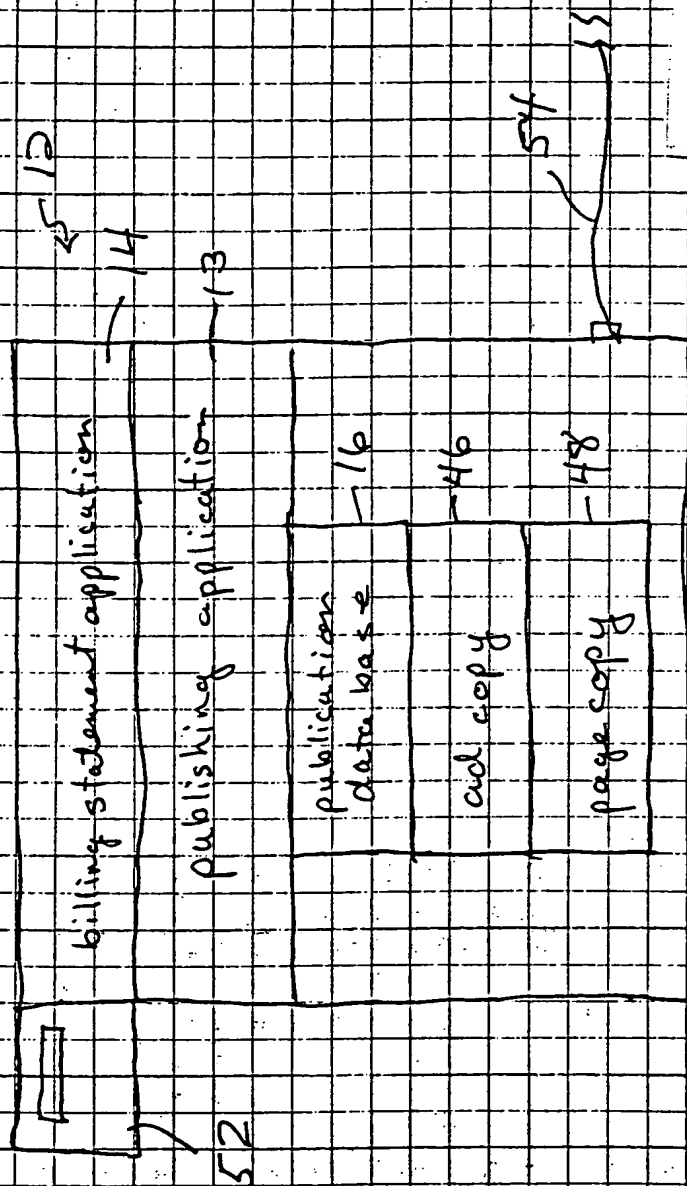 12
billing statement application
14
publishing application
13
publication
data base
16
ad copy
46
page copy
48
52
54